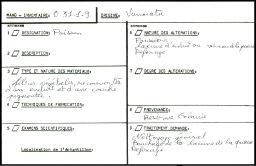 MAAO - INVENTAIRE: 031.1.9
ORIGINE: Vanuatu
1 DESIGNATION: Poisson
2 DESCRIPTION:
3 TYPE ET NATURE DES MATERIAUX:
fibres végétales recouvertes
d'un enduit et d'une couche
pigmentée
4 TECHNIQUES DE FABRICATION:
5 EXAMENS SCIENTIFIQUES:
Localisation de l'échantillon:
6 NATURE DES ALTERATIONS:
Poussière
lacune d'enduit au niveau de la queue
7 DEGRE DES ALTERATIONS:
8 PROVENANCE:
Réserve
9 TRAITEMENT DEMANDE:
Nettoyage général
lacune de la queue